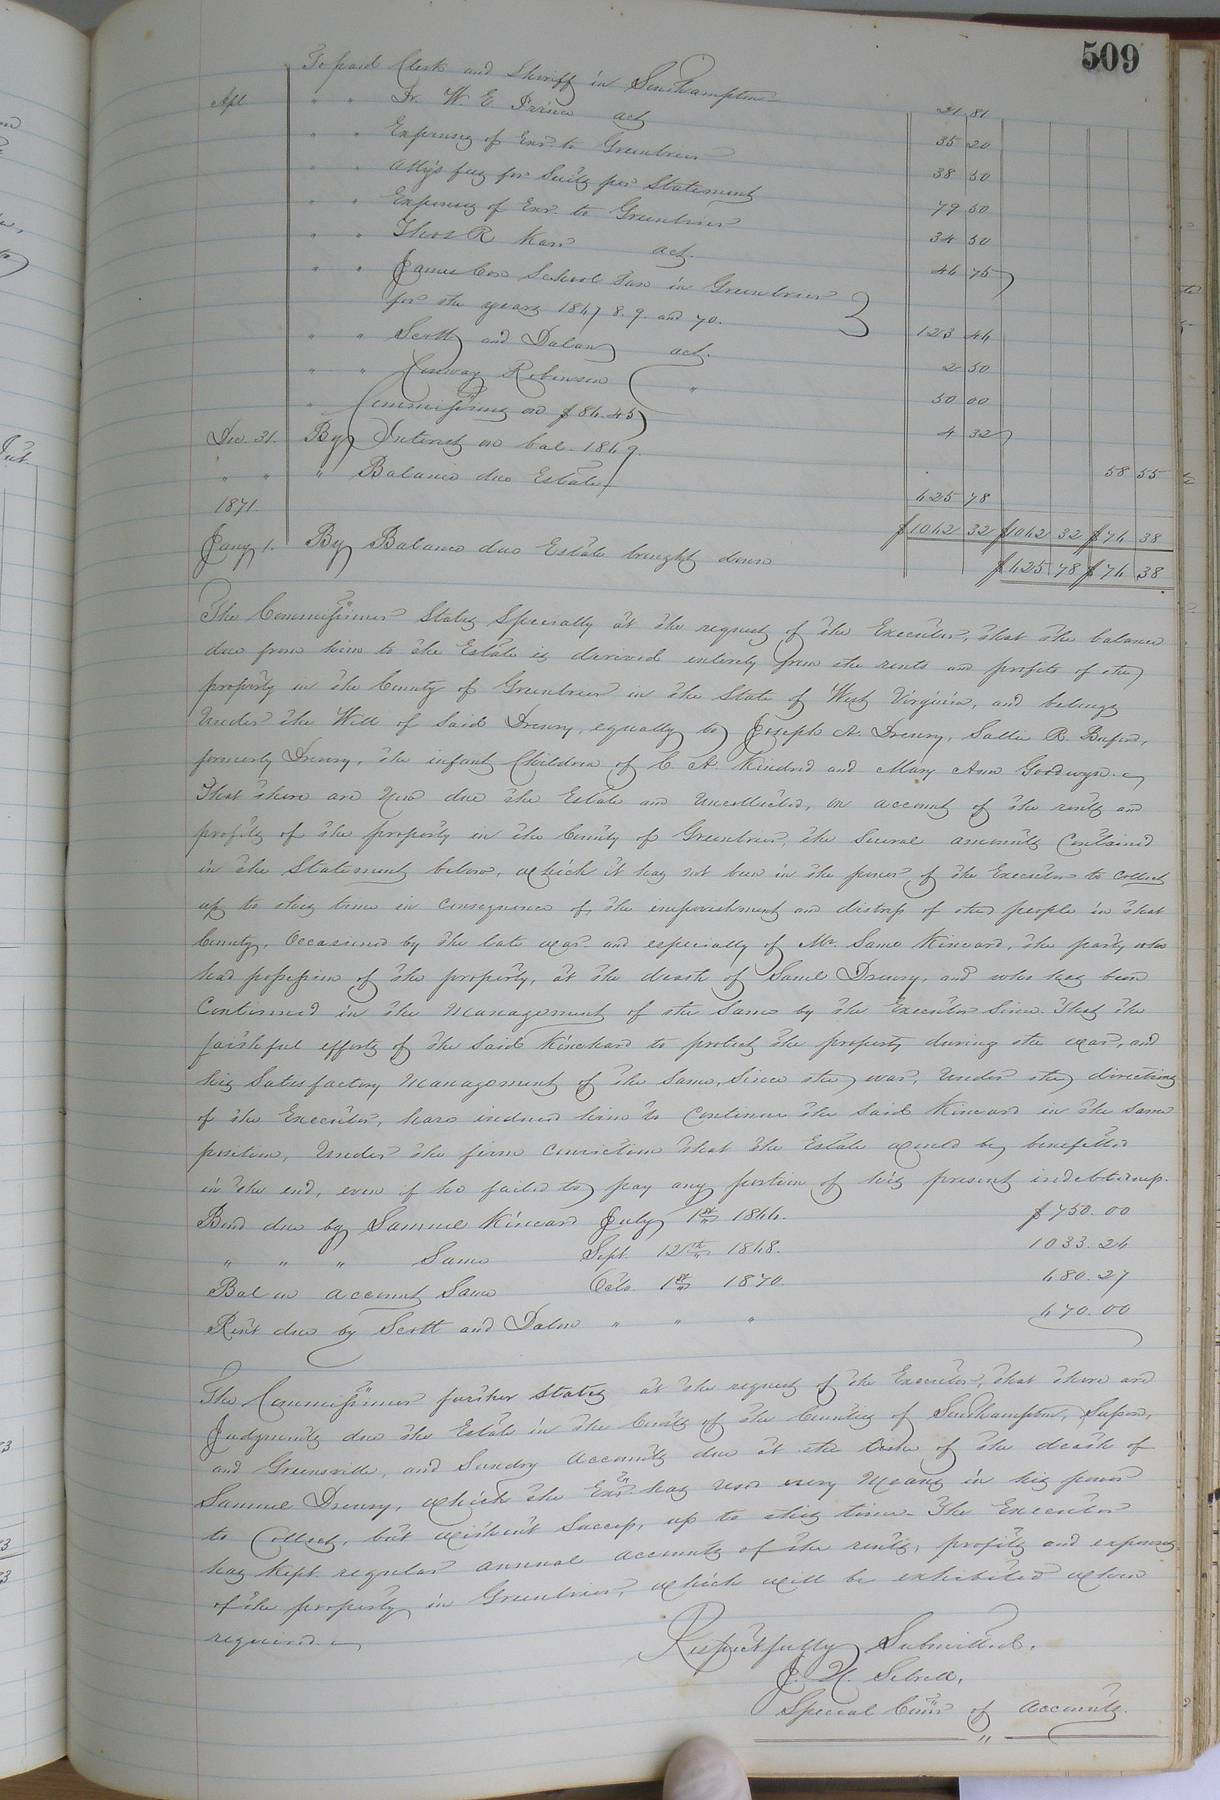 509
To paid Clerk and Sheriff in Southampton 21 81
Apl " " Dr. W E Prince act 35 20
" " Expenses of Exr. to Greenbrier 38 50
" " Atty's fees for Suits per Statement 79 50
" " Expenses of Exr. to Greenbrier 34 50
" " Thos R Kars act. 46 75
" " James Cox School Tax in Greenbrier
for the years 1867 8. 9. and 70. 123 44
" " Scott and Dalan act. 2 50
" " Conway Robinson " 50 00
" Commissions on $86.45 4 32
Dec. 31. By Interest on bal. 1869. 58 55
" " " Balance due Estate 625 78
1871 $1062 32 $1062 32 $74 38
Jany 1. By Balance due Estate brought down $625 78 $74 38
The Commissioner States Specially at the request of the Executor, that the balance
due from him to the Estate is derived entirely from the rents and profits of the
property in the County of Greenbrier in the State of West Virginia, and belongs
Under the Will of Said Drewry, equally to Joseph A. Drewry, Sallie R. Buford,
formerly Drewry, the infant Children of C. A. Kindred and Mary Ann Goodwyn.
That there are now due the Estate and Uncollected, on account of the rents and
profits of the property in the County of Greenbrier, the Several amounts Contained
in the Statement below, which it has not been in the power of the Executor to Collect
up to this time in consequence of, the impoverishment and distress of the people in that
County, Occasioned by the late war and especially of Mr. Saml Kincard, the party who
had possession of the property, at the death of Saml Drewry, and who has been
Continued in the Management of the Same by the Executor Since. That the
faithful efforts of the Said Kincard to protect the property during the war, and
his Satisfactory Management of the Same, Since the war, Under the directions
of the Executor, have induced him to Continue the Said Kincard in the Same
position, Under the firm Conviction that the Estate would be benefitted
in the end, even if he failed to pay any portion of his present indebtedness.
Bond due by Samuel Kincard July 1st 1866. $750.00
" " " Same Sept 12th 1868. 1033.24
Bal on account Same Octo. 1st 1870. 680.27
Rent due by Scott and Dalan " " " 670.00
The Commissioner further States at the request of the Executor, that there are
Judgments due the Estate in the Courts of the Counties of Southampton, Sussex,
and Greensville, and Sundry Accounts due at the time of the death of
Samuel Drewry, which the Exr. has used every Means in his power
to Collect, but without Success, up to this time. The Executor
has Kept regular annual accounts of the rents, profits and expenses
of the property in Greenbrier, which will be exhibited when
required.
Respectfully Submitted,
J. N. Sebrell,
Special Comr of Accounts.